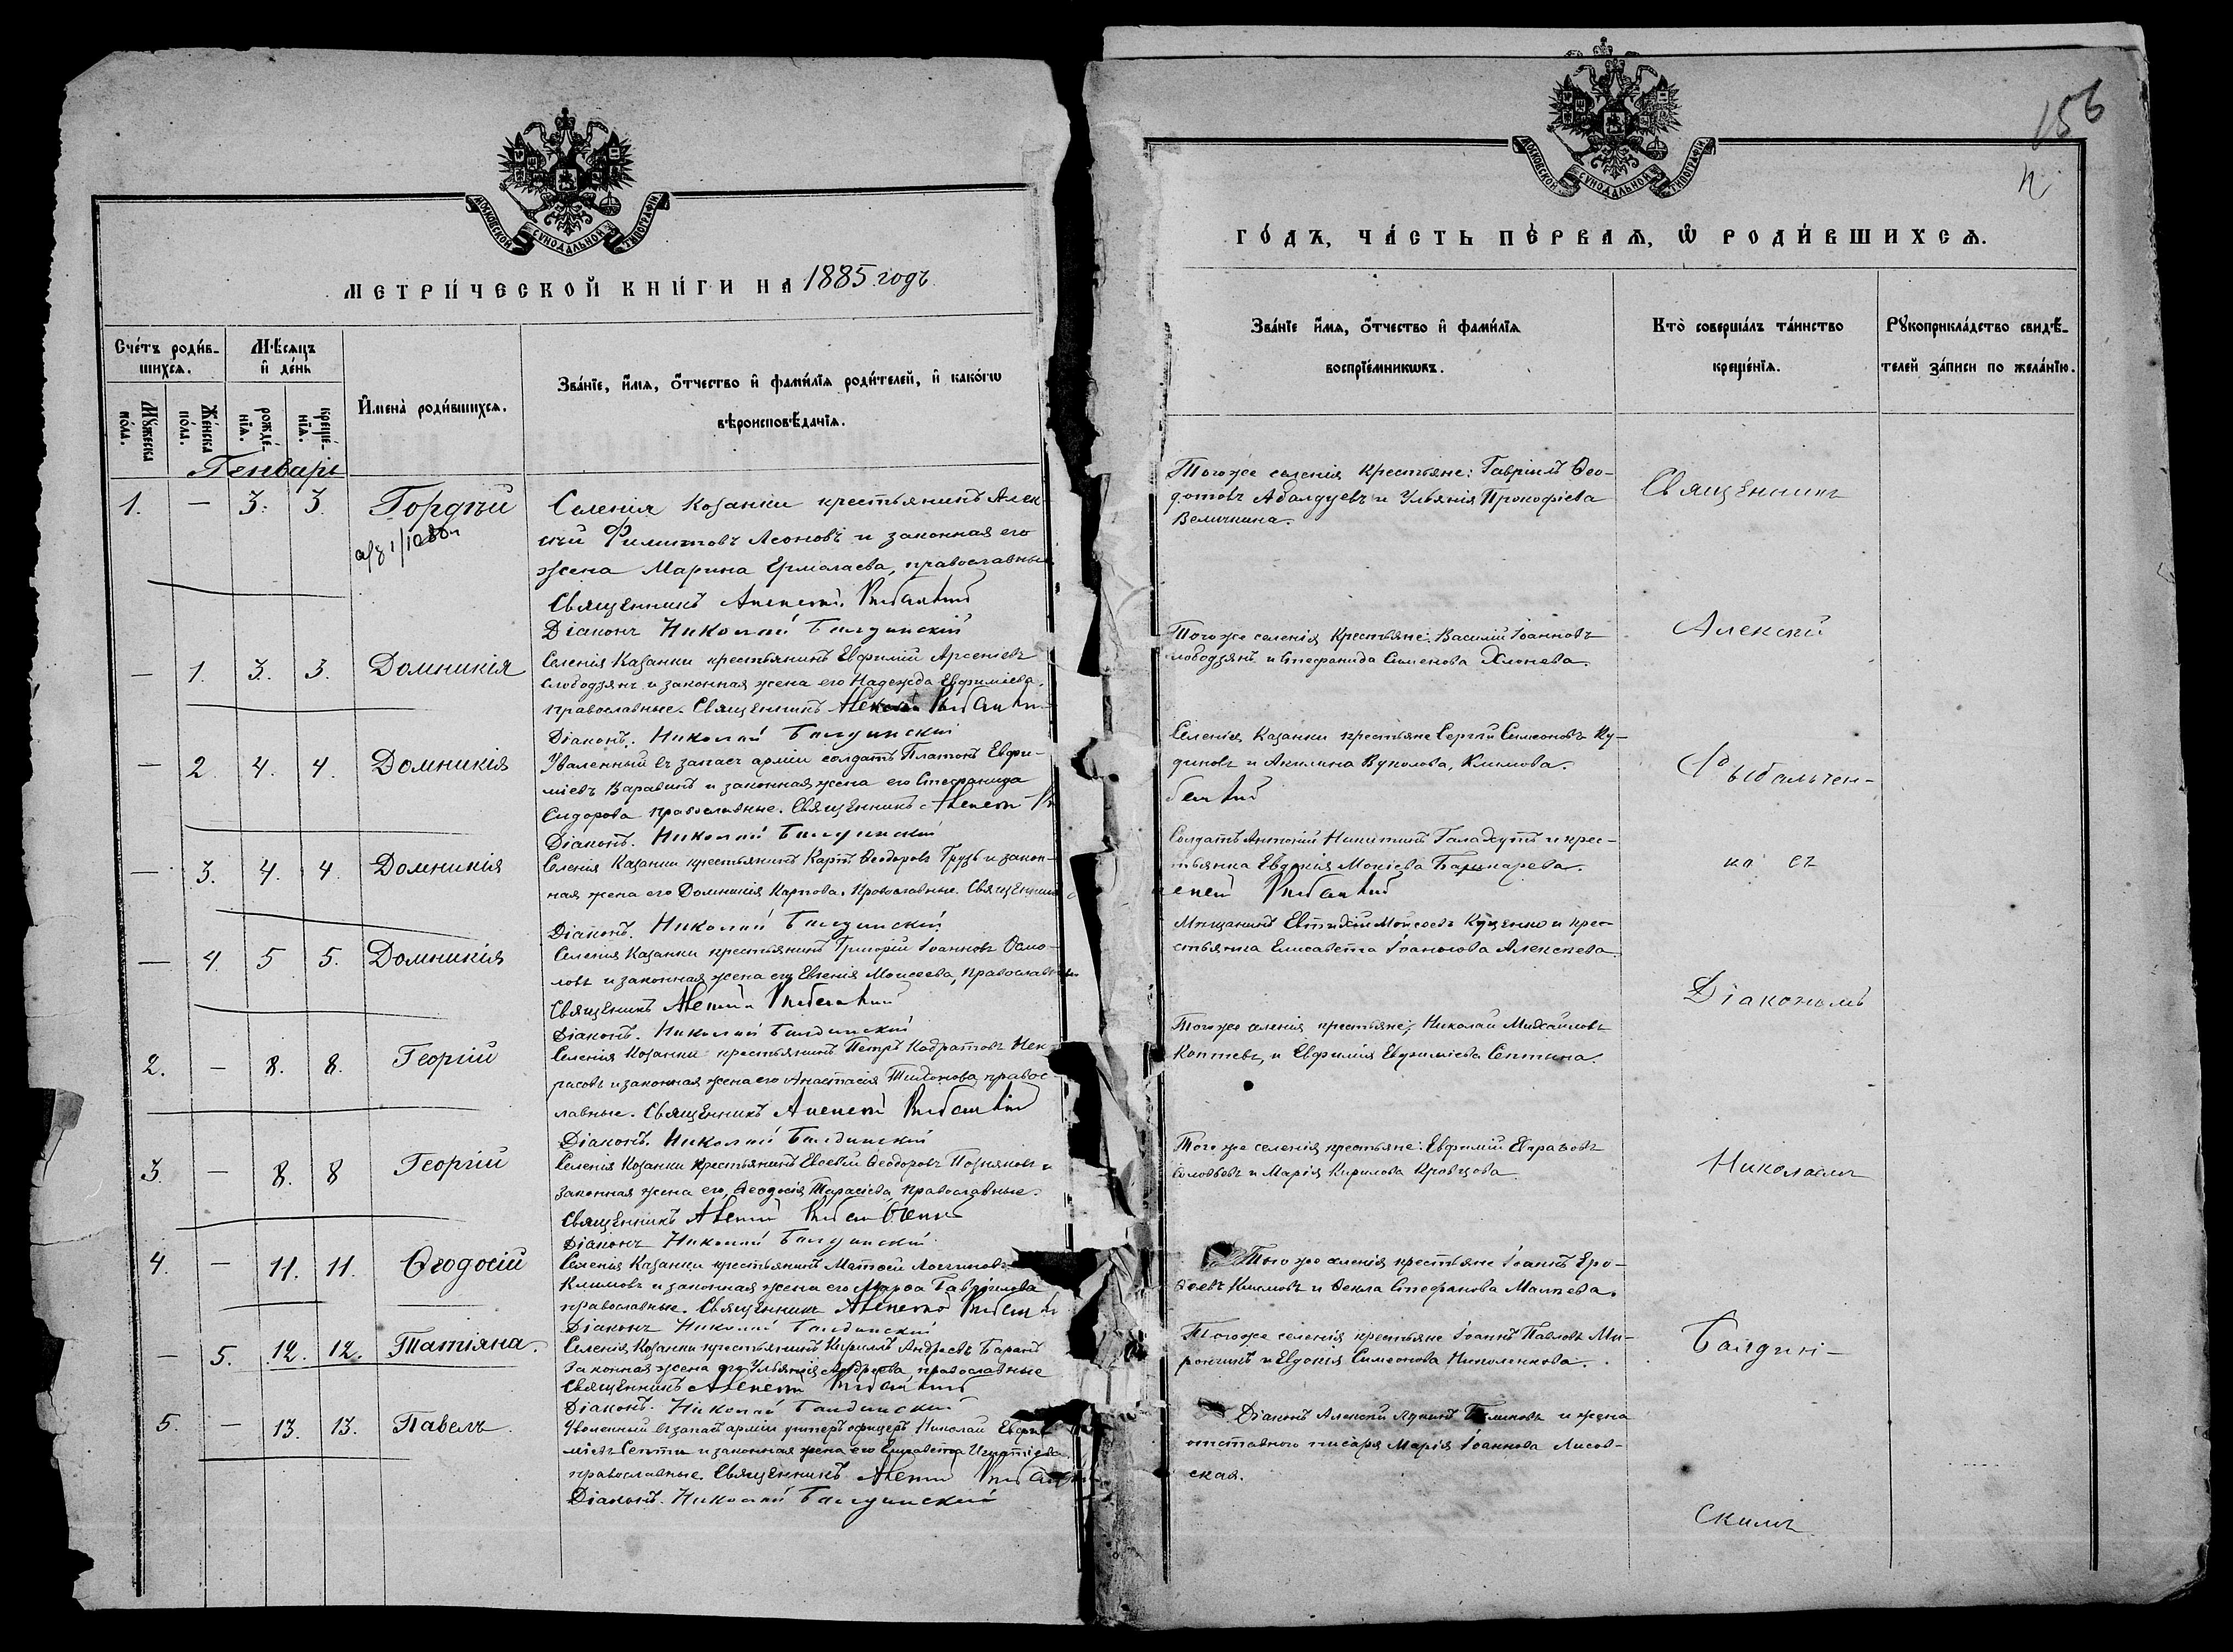 МОСКОВСКОЙ СУНОДАЛЬНОЙ ТИПОГРАФІИ
МЕТРИ́ЧЕСКОЙ КНИ́ГИ НА 1885 годъ
Сче́тъ роди́в-
шихсѧ.
Мѣ́сѧцъ
и҆ де́нь
Мꙋ́жеска
по́ла.
Же́нска
по́ла.
рожде́-
нїѧ.
креще́-
нїѧ.
И҆мена̀ роди́вшихсѧ.
Зва́нїе, и҆́мѧ, ѻ҆́тчество и҆ фами́лїѧ роди́телей, и҆ како́гѡ
вѣроисповѣ́данїѧ.
Генварь
1. — 3. 3. Гордѣй
Селенія Казанки крестьянинъ Алек-
сѣй Филиповъ Леоновъ и законная его
жена Марина Ермолаева, православные
Священникъ
Діаконъ Николай Балдинскій
— 1. 3. 3. Домникія
Селенія Казанки крестьянинъ Евфимій Арсеніевъ
Слободзянъ и законная жена его Надежда Евфиміева,
православные. Священникъ
Діаконъ. Николай Балдинскій
— 2. 4. 4. Домникія
Уваленный въ запасъ арміи солдатъ Платонъ Евфи-
міевъ и законная жена его Стефанида
Сидорова православные. Священникъ
Діаконъ. Николай Балдинскій
— 3. 4. 4. Домникія
Селенія Казанки крестьянинъ Карпъ Ѳеодоровъ и закон-
ная жена его Домникія Карпова, православные. Священникъ
Діаконъ. Николай Балдинскій
— 4. 5 5. Домникія
Селенія Казанки крестьянинъ Григорій Іоанновъ Осмо-
ловъ и законная жена его Евгенія Моисеева, православные
Священникъ
Діаконъ. Николай Балдинскій
2. — 8. 8. Георгій
Селенія Казанки крестьянинъ Петръ Кодратовъ Нек-
расовъ и законная жена его Анастасія Тихонова, правос-
лавные. Священникъ
Діаконъ. Николай Балдинскій
3. — 8. 8 Георгій
Селенія Казанки крестьянинъ Евсевій Ѳеодоровъ Позняковъ и
законная жена его, Ѳеодосія Тарасіева, православные.
Священникъ
Діаконъ Николай Балдинскій
4. — 11. 11. Ѳеодосій
Селенія Казанки крестьянинъ Матѳей Логгиновъ
Климовъ и законная жена его Марѳа Гавріилова
православные. Священникъ
Діаконъ Николай Балдинскій
— 5. 12. 12. Татіяна.
Селенія Казанки крестьянинъ Кириллъ Андреевъ Баранъ
Законная жена его Ульянія Андреева, православные
Священникъ
Діаконъ. Николай Балдинскій
5. — 13. 13. Павелъ.
Уволенный въ запасъ арміи унтеръ офицеръ Николай Евфи-
міевъ и законная жена его Елисавета Игнатіева
православные. Священникъ
Діаконъ. Николай Балдинскій
156
МОСКОВСКОЙ СУНОДАЛЬНОЙ ТИПОГРАФІИ
ГО́ДЪ, ЧА́СТЬ ПЕ́РВАѦ, Ѡ҆ РОДИ́ВШИХСѦ.
Зва́нїе и҆́мѧ, ѻ҆́тчество и҆ фами́лїѧ
воспрїе́мникѡвъ.
Кто̀ соверша́лъ та́инство
креще́нїѧ.
Рꙋкоприкла́дство свидѣ́-
телей за́писи по жела́нїю.
Того же селенія крестьяне: Гавріилъ Ѳео-
дотовъ Абалдуевъ и Ульянія Прокофіева
Величкина.
Священникъ
Того же селенія крестьяне: Василій Іоанновъ
Слободзянъ и Стефанида Симеонова
Алексѣй
Селенія Казанки крестьяне Сергій Симеоновъ Ку-
диновъ и Акилина Вуколова, Климова.
Рыбальчен-
Солдатъ Антоній Никитинъ и крес-
тьянка Евдокія
ко съ
Мѣщанинъ Евтихій Моисеевъ Куценко и крес-
тьянка Елисавета Іоаннова Алексеева.
Діакономъ
Того же селенія крестьяне: Николай Михайловъ
Коптевъ, и Евфимія Евфиміева
Того же селенія крестьяне: Евфимій
Соловьевъ и Марія Кирилова Кравцова
Николаемъ
Того же селенія крестьяне Іоаннъ Еро-
ѳеевъ Климовъ и Ѳекла Стефанова
Того же селенія крестьяне Іоаннъ Павловъ Ми-
рончикъ и Евдокія Симеонова Николенкова.
Балдин-
Діаконъ Алексѣй и жена
отставного писаря Марія Іоаннова Лисов-
ская.
скимъ